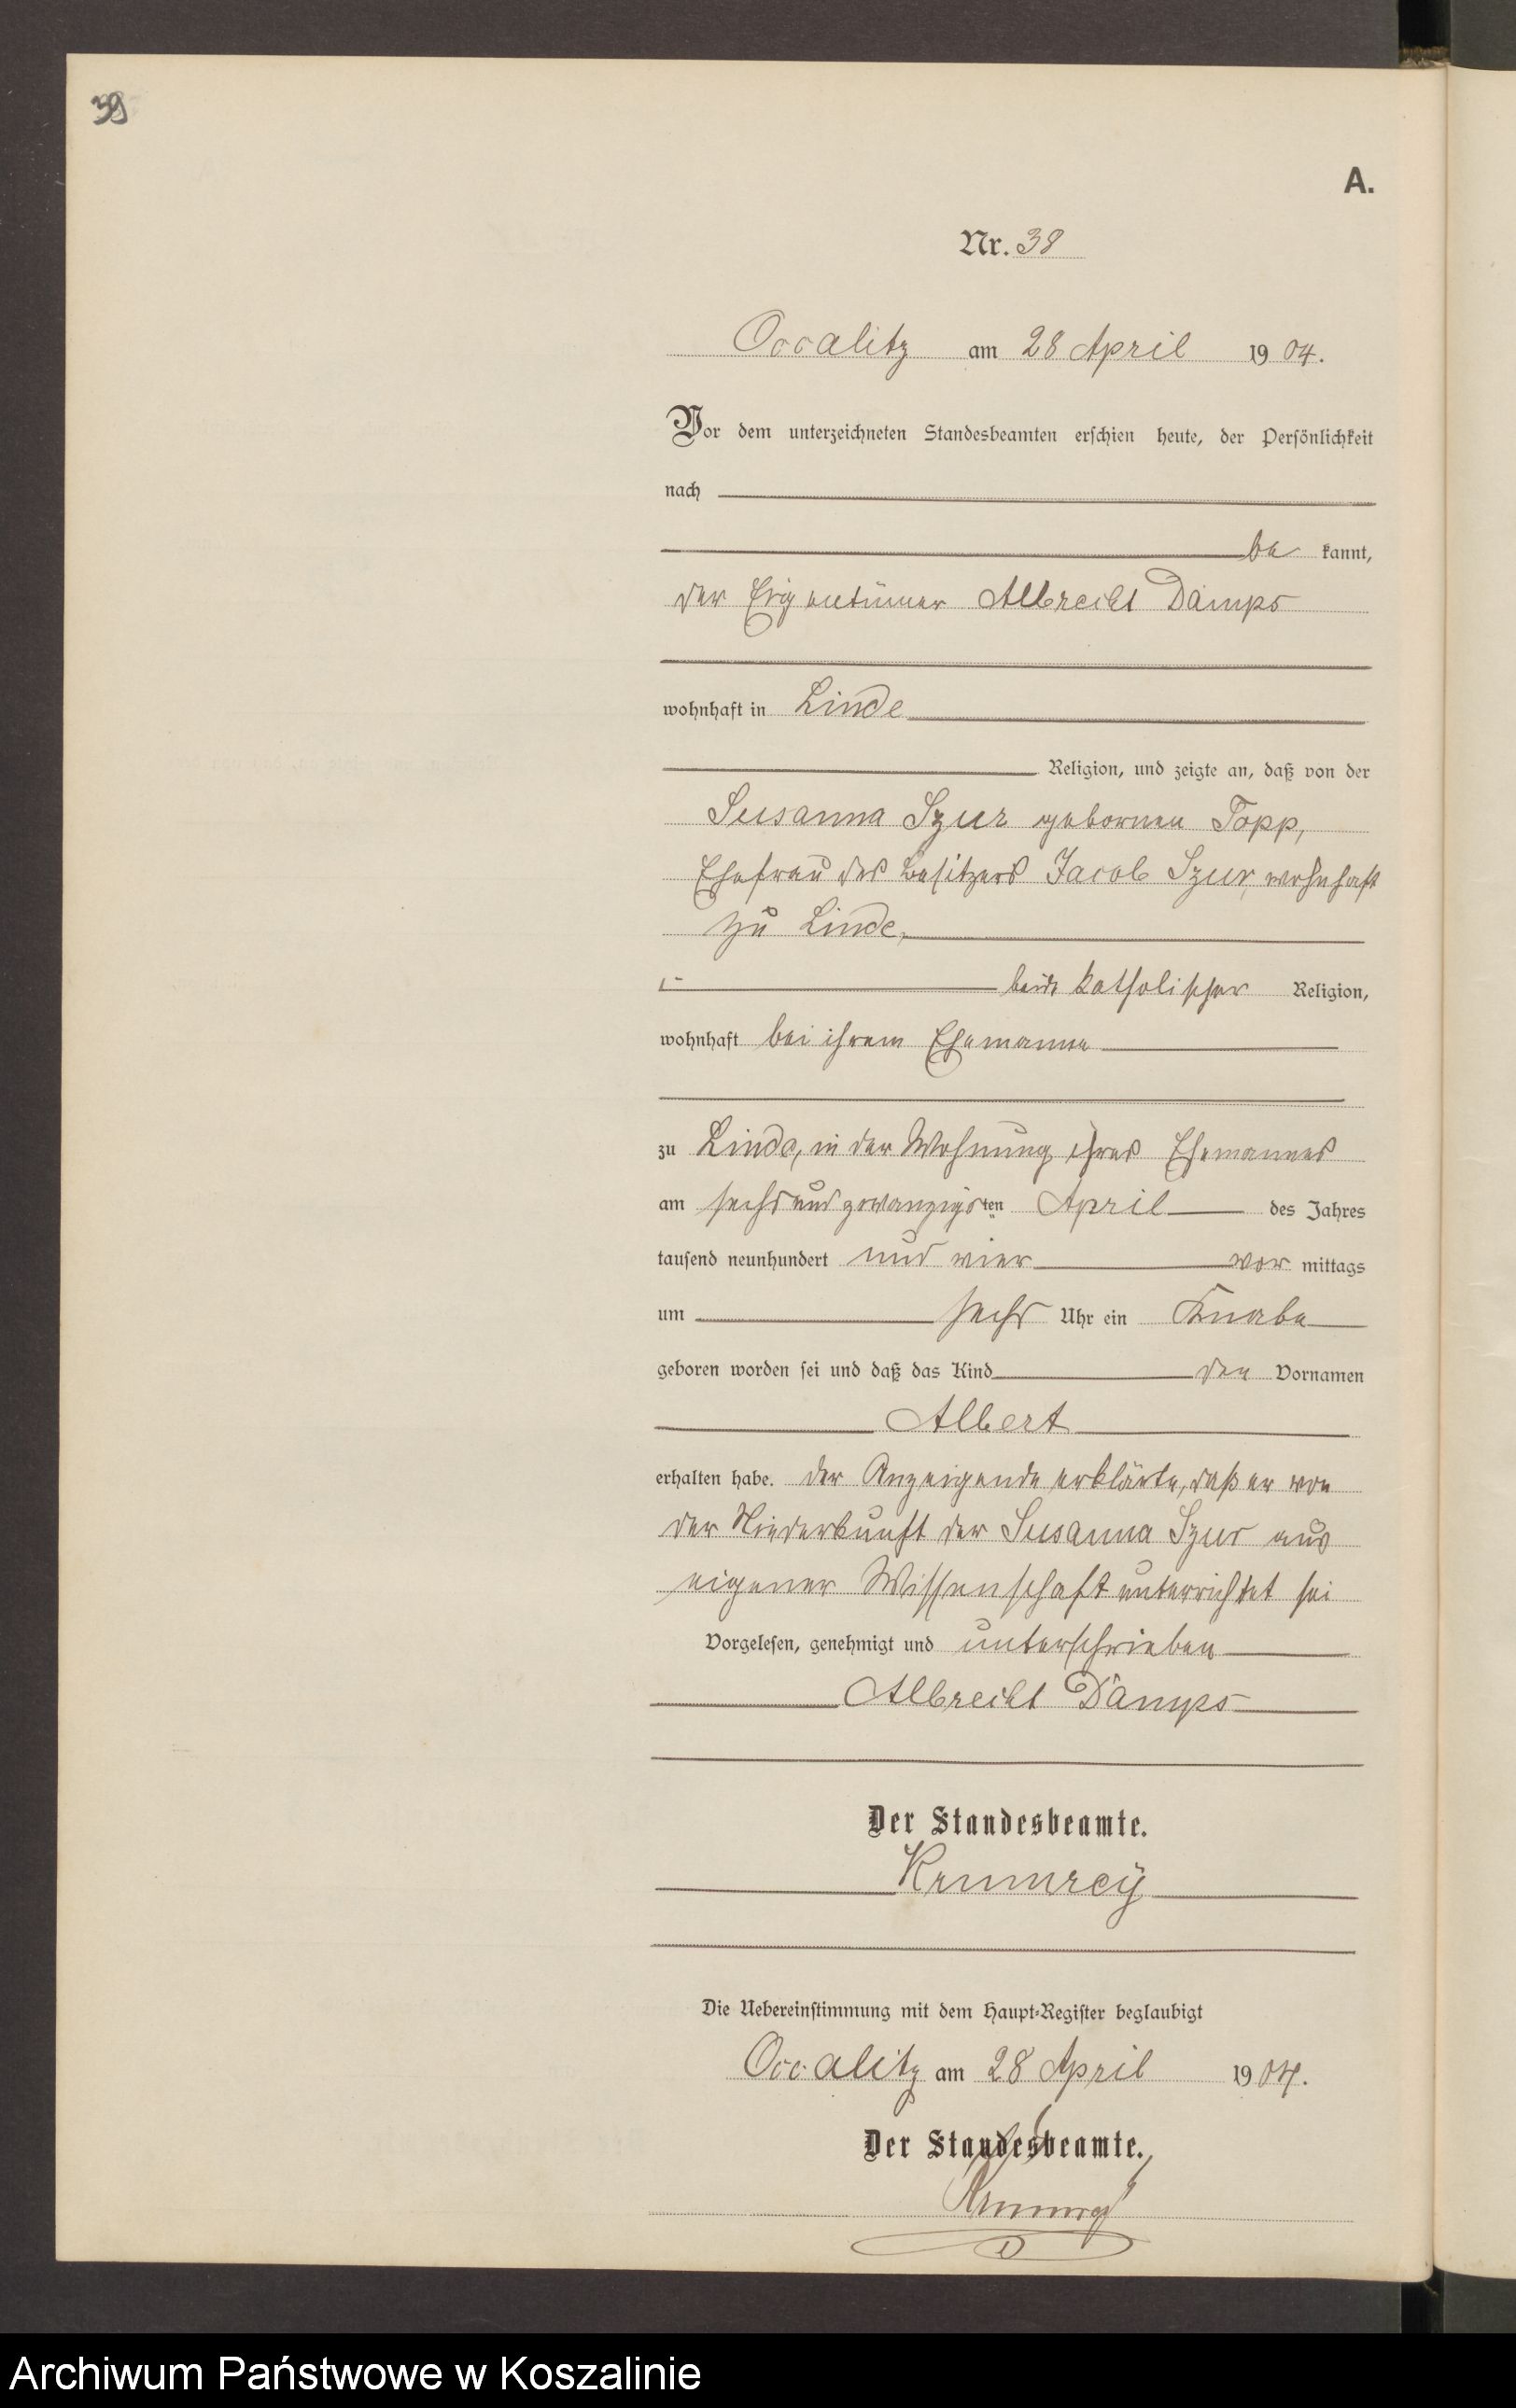 39
A.
Nr. 38
Occalitz am 28 April 1904.
Vor dem unterzeichneten Standesbeamten erschien heute, der Persönlichkeit
nach
be kannt,
der Eigentümer Albrecht Damps
wohnhaft in Linde
Religion, und zeigte an, daß von der
Susanna Szur gebornen Topp,
Ehefrau des Besitzers Jacob Szur, wohnhaft
zu Linde,
beide katholischer Religion,
wohnhaft bei ihrem Ehemanne
zu Linde, in der Wohnung ihres Ehemannes
am sechsundzwanzigsten April des Jahres
tausend neunhundert und vier vor mittags
um sechs Uhr ein Knabe
geboren worden sei und daß das Kind den Vornamen
Albert
erhalten habe. Der Anzeigende erklärte, daß er von
der Niederkunft der Susanna Szur aus
eigener Wissenschaft unterrichtet sei
Vorgelesen, genehmigt und unterschrieben
Albrecht Damps
Der Standesbeamte.
Krumrey
Die Uebereinstimmung mit dem Haupt-Register beglaubigt
Occalitz am 28 April 1904.
Der Standesbeamte.
Krumrey
Archiwum Państwowe w Koszalinie